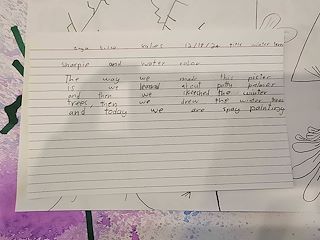 12/18/24 title winter trees
Sharpie and water color
The way we made this picter
is we learned about paths palmer
and then we skeched the winter
trees, then we drew the winter trees
and today we are spay painting